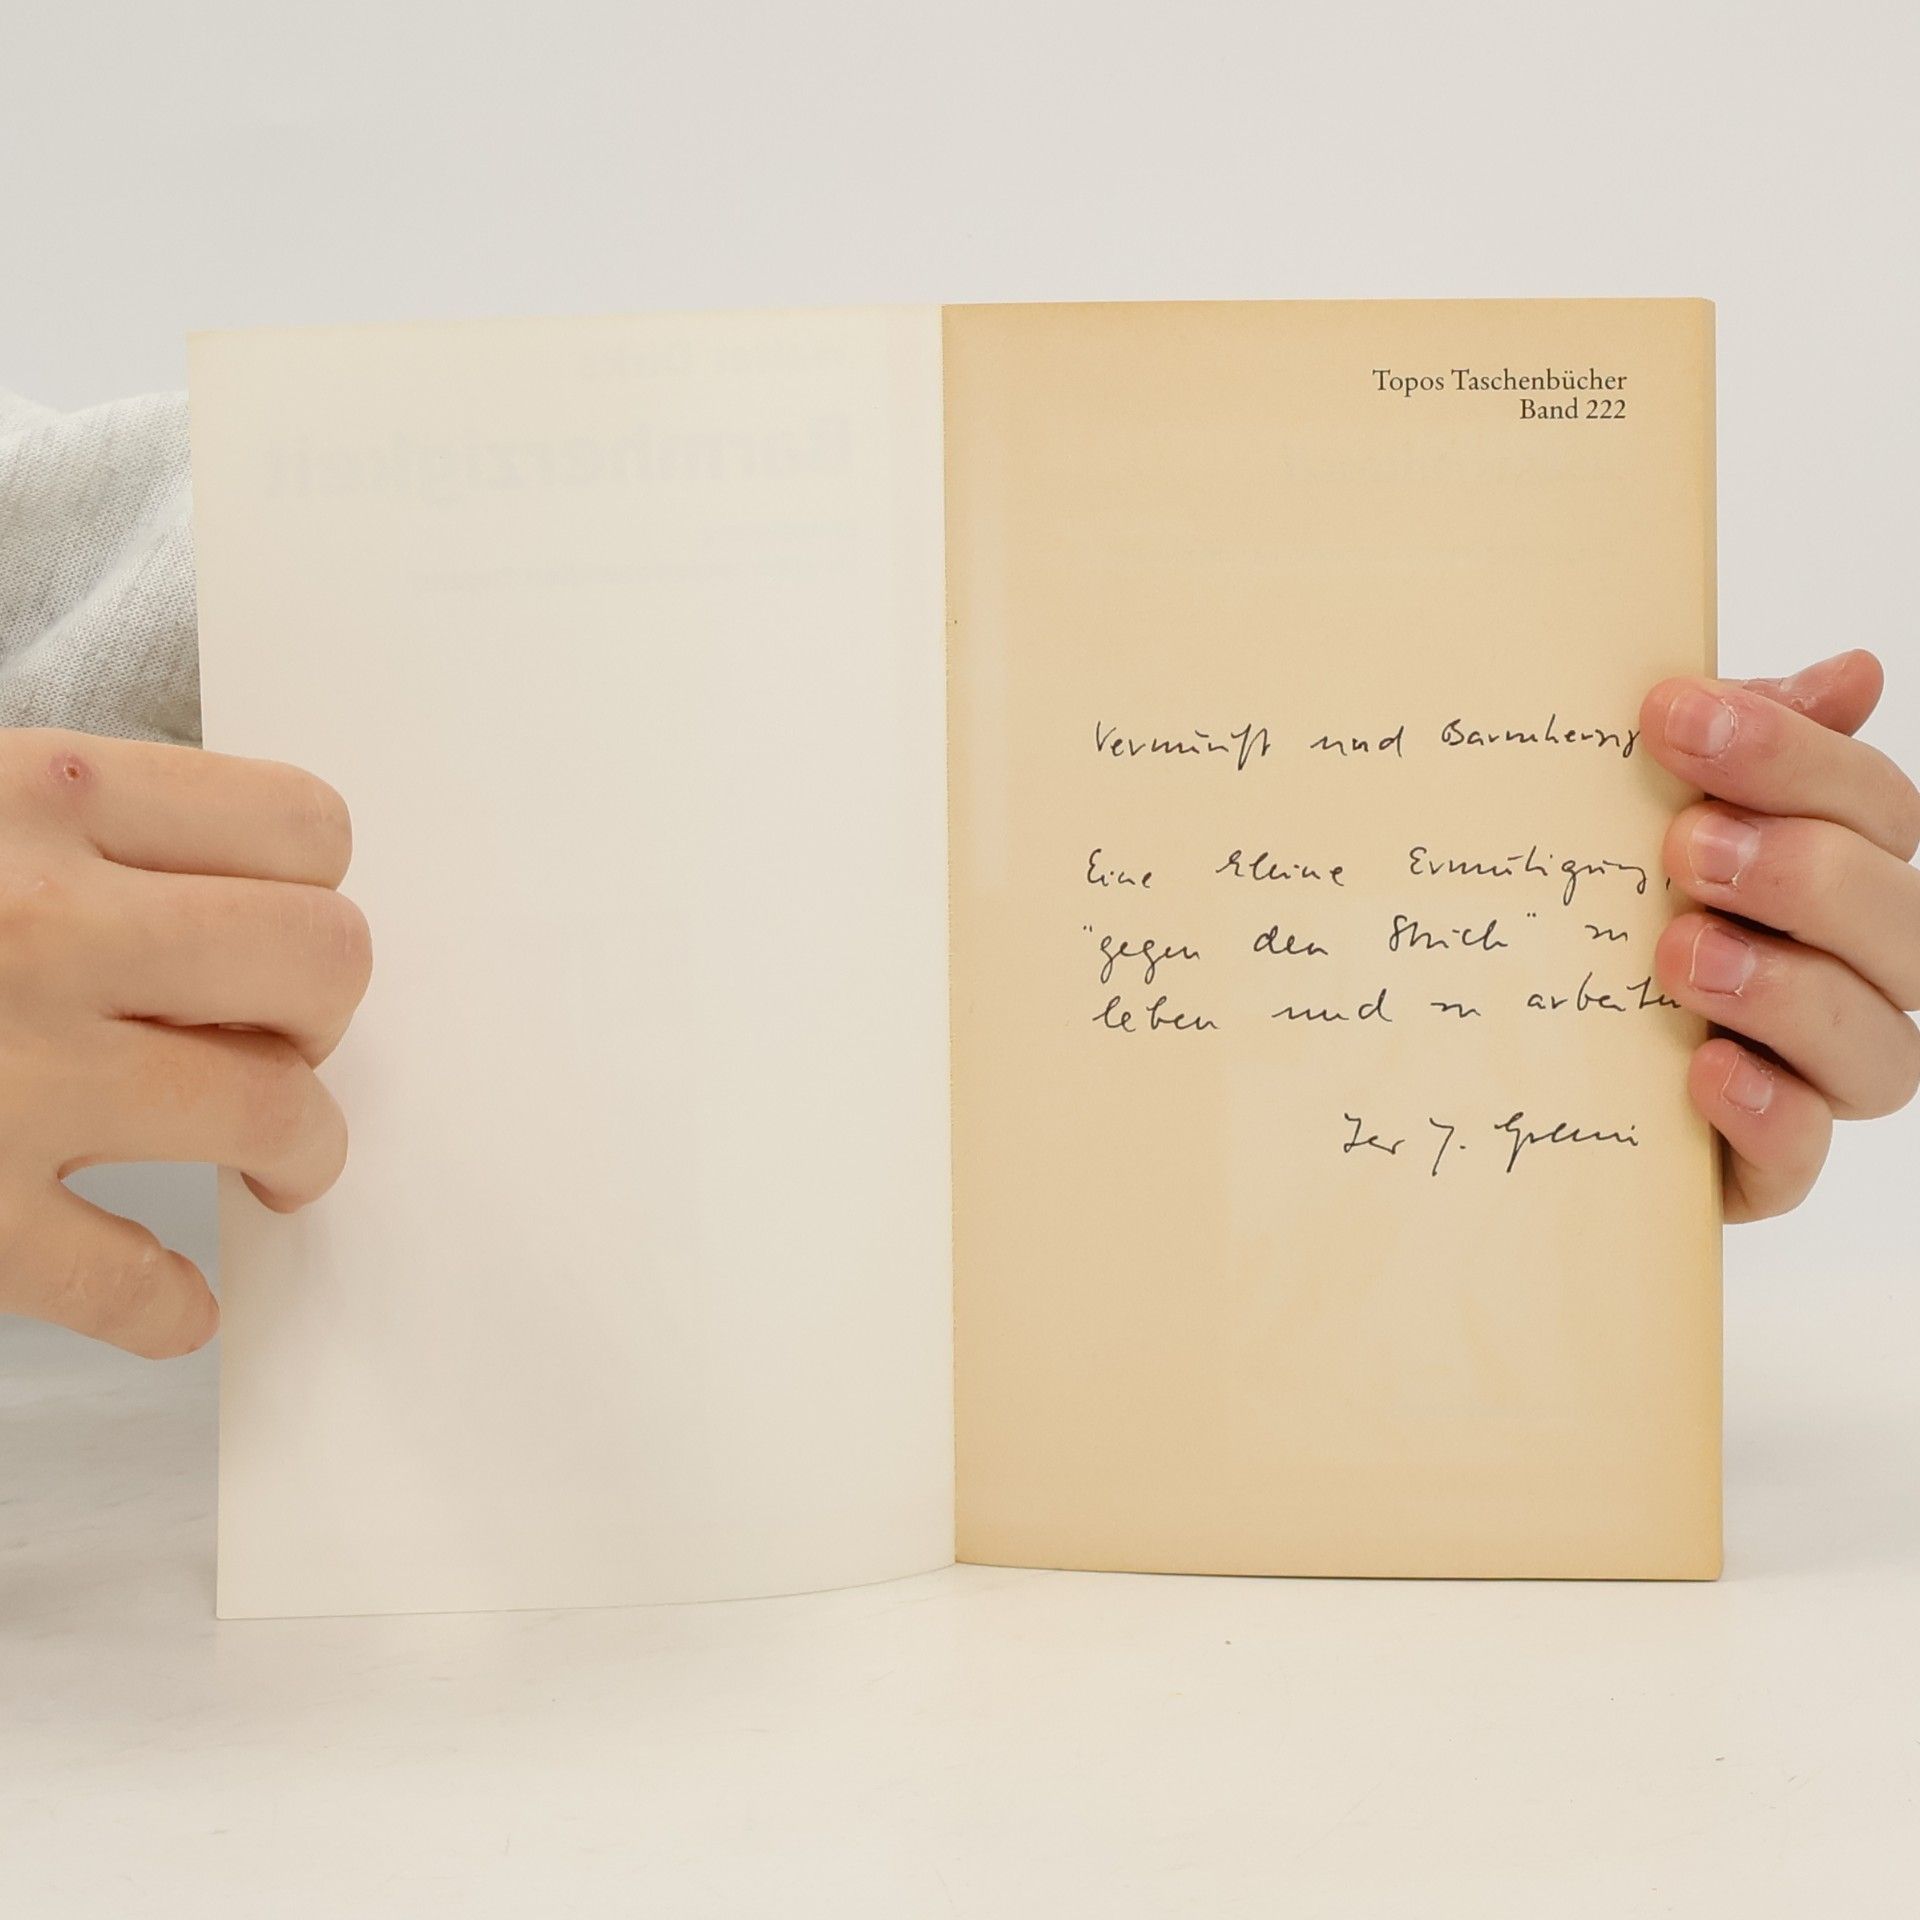 Topos Taschenbücher
Band 222
Vernunft und Barmherzig
Eine kleine Ermutigung,
"gegen den Strich" zu
leben und zu arbeiten
J.
Barmherzigkeit